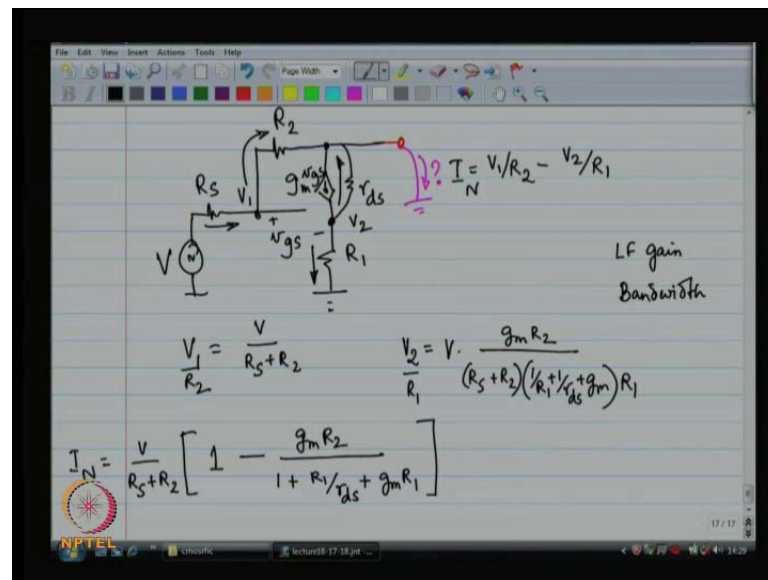 File Edit View Insert Actions Tools Help
Page Width
R2
RS
V1
gm vgs
rds
? IN = V1/R2 - V2/R1
+
vgs
-
V2
V
N
R1
LF gain
Bandwidth
V1/R2 = V/(RS+R2)
V2/R1 = V · gmR2/((RS+R2)(1/R1+1/rds+gm)R1)
IN = V/(RS+R2) [1 - gmR2/(1 + R1/rds + gmR1)]
17 / 17
NPTEL
cmosrfic
lecture16-17-18.jnt -...
14:29